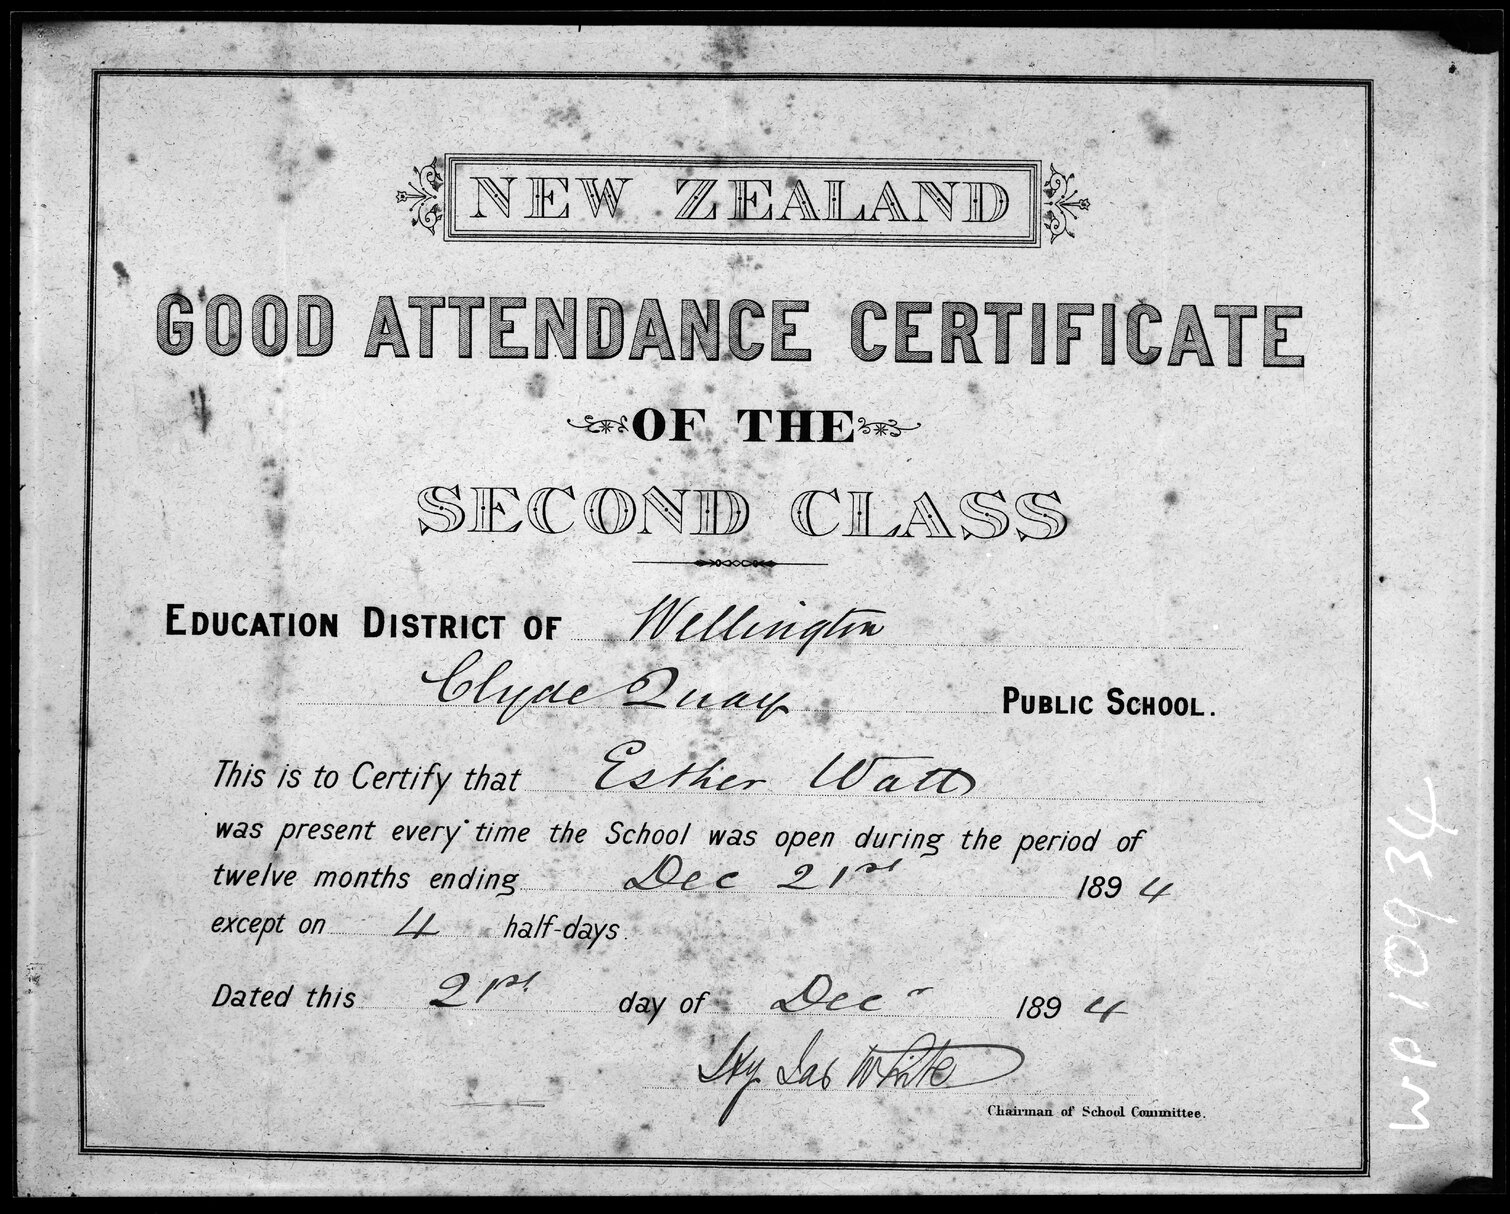 NEW ZEALAND
GOOD ATTENDANCE CERTIFICATE
OF THE
SECOND CLASS
EDUCATION DISTRICT OF Wellington
Clyde Quay PUBLIC SCHOOL.
This is to Certify that Esther Watt
was present every time the School was open during the period of
twelve months ending Dec 21st 1894
except on 4 half-days.
Dated this 21st day of Decr 1894
Hy Jas White
Chairman of School Committee.
WP 10934